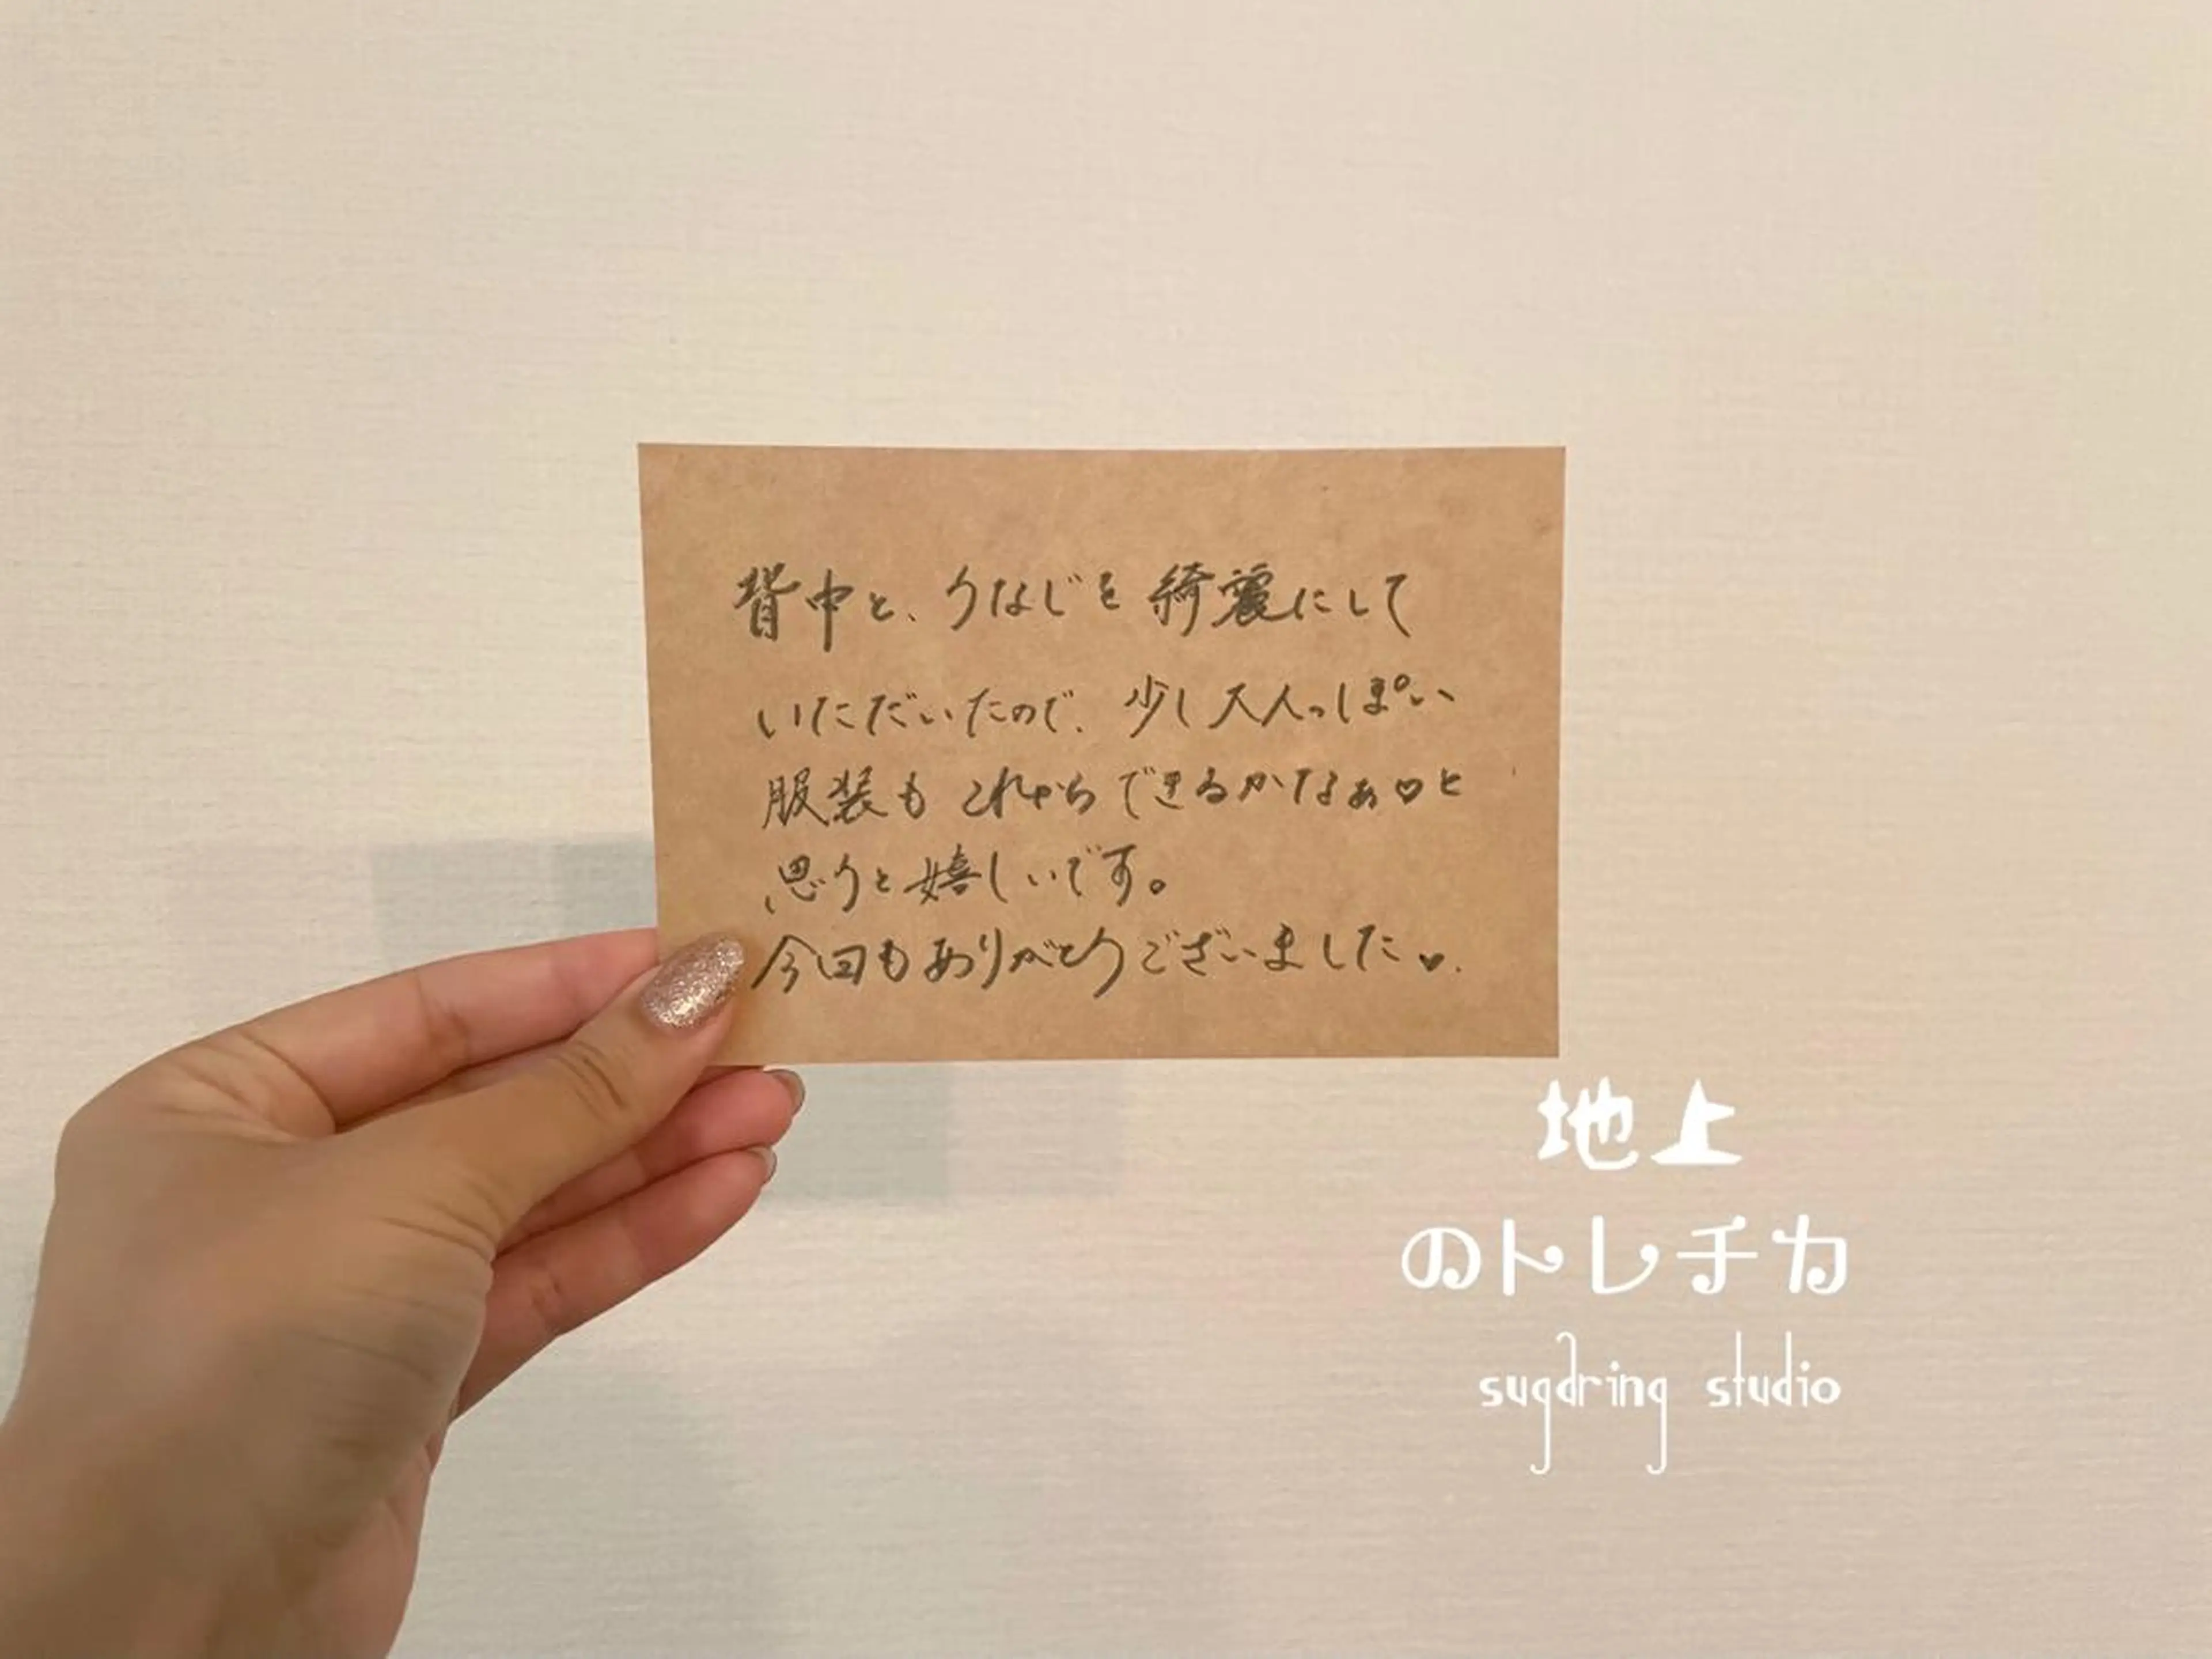 背中と、うなじを綺麗にして
いただいたので、少し大人っぽい
服装もこれからできるかなぁ♡と
思うと嬉しいです。
今回もありがとうございました♥.
地上
のトレチカ
sugaring studio